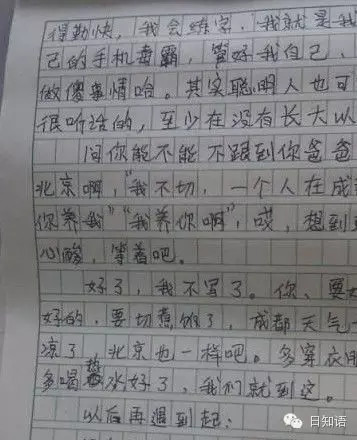 得勤快，我会练字，我就是我
己的手机毒霸，管好我自己、
做傻事情哈。其实聪明人也可
很听话的，至少在没有长大以
问你能不能不跟到你爸爸
北京啊，“我不切，一个人在成
你养我”“我养你啊”，哎，想到
心酸，等着吧。
好了，我不写了。你、要
好的，要切煮饭了，成都天气
凉了，北京也一样吧。多穿衣服
多喝热水好了，我们就到这。
以后再遇到起：
日知语